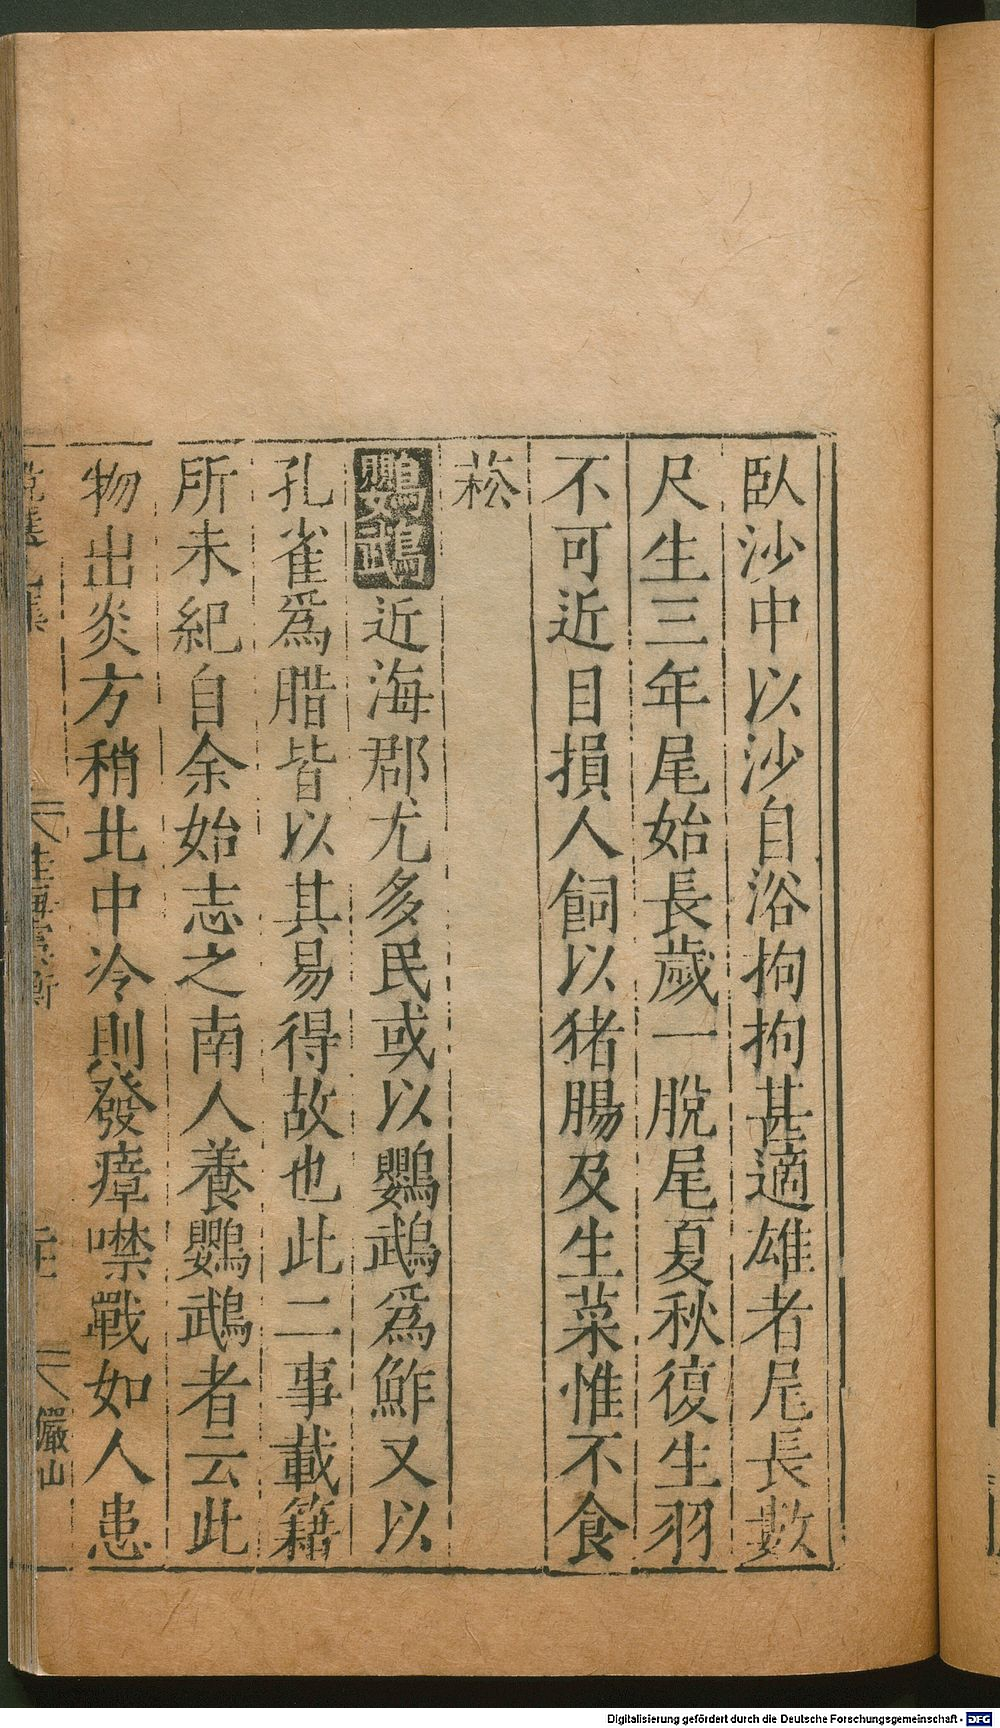 臥沙中以沙自浴拘拘甚適雄者尾長數
尺生三年尾始長歲一脫尾夏秋復生羽
不可近目損人飼以猪腸及生菜惟不食
菘
鸚䳇近海郡尤多民或以鸚䳇爲鮓又以
孔雀爲腊皆以其易得故也此二事載籍
所未紀自余始志之南人養鸚䳇者云此
物出炎方稍北中冷則發瘴噤戰如人患
桂海虞衡
儼山
Digitalisierung gefördert durch die Deutsche Forschungsgemeinschaft - DFG